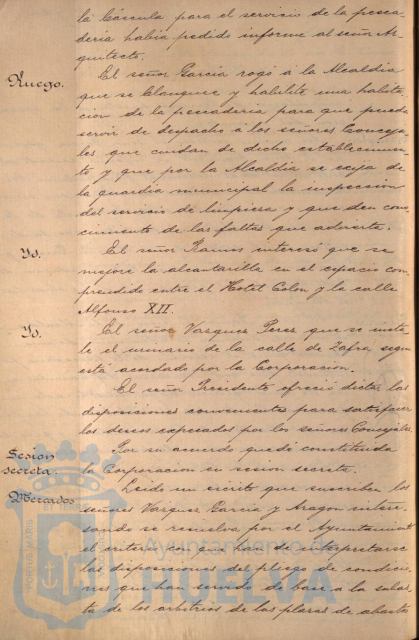 la Cáscula para el servicio de la pesca-
dería había pedido informe al señor Ar-
quitecto.
Ruego.
El señor García rogó á la Alcaldía
que se blanquee y habilite una habita-
cion de la pescadería para que pueda
servir de despacho á los señores Conceja-
les que cuidan de dicho establecimien-
to y que por la Alcaldía se exija de
la guardia municipal la inspeccion
del servicio de limpieza y que den cono-
cimiento de las faltas que advierta.
Yd.
El señor Ramos interesó que se
mejore la alcantarilla en el espacio com-
prendido entre el Hotel Colon y la calle
Alfonso XII.
Yd.
El señor Vazquez Perez que se insta-
le el urinario de la calle de Zafra segun
está acordado por la Corporacion.
El señor Presidente ofreció dictar las
disposiciones convenientes para satisfacer
los deseos expresados por los señores Concejales.
Sesion
secreta.
Por su acuerdo quedó constituida
la Corporacion en sesion secreta.
Mercados
Leido un escrito que suscriben los
señores Vazquez García y Aragon intere-
sando se resuelva por el Ayuntamiento
el criterio con que han de interpretarse
las disposiciones del pliego de condicio-
nes que han servido de base á la subas-
ta de los arbitrios de las plazas de abastos
Ayuntamiento de
HUELVA